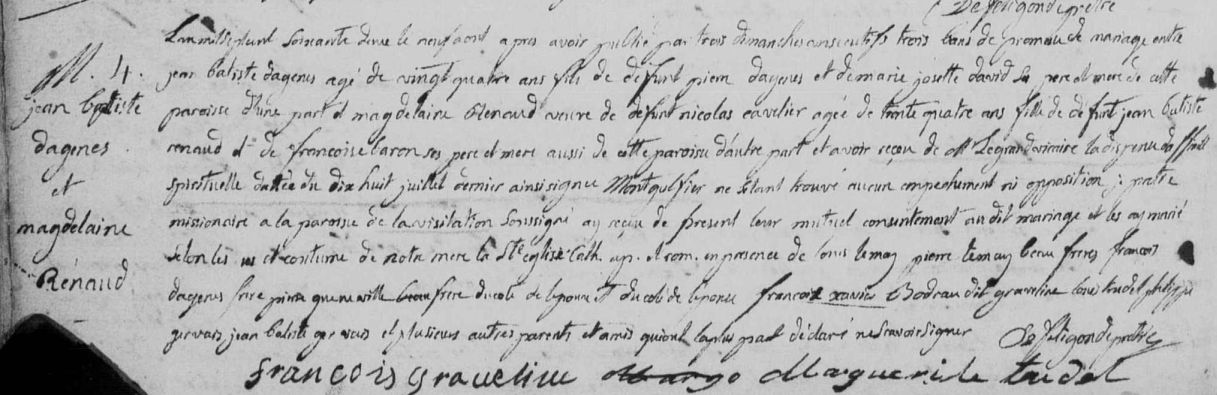 De feligonde prêtre
M. 4.
jean baptiste
dagenes
et
magdelaine
Rénaud
L'an mil sept cent soixante deux le neuf aout apres avoir publié par trois dimanches consecutifs trois bans de promesse de mariage entre
jean batiste dagenes agé de vingt quatre ans fils de defunt pierre dagenes et de marie josette david ses pere et mere de cette
paroisse d'une part et magdelaine Renaud veuve de defunt nicolas cavelier agée de trente quatre ans fille de defunt jean batiste
renaud et de francoise baron ses pere et mere aussi de cette paroisse d'autre part et avoir reçeu de Mr Le grand vicaire la dispense
spirituelle dattée du dix huit juillet dernier ainsi signee Montgolfier ne setant trouvé aucun empechement ni opposition je pretre
missionaire a la paroisse de la visitation soussigné ay reçeu de present leur mutuel consentement au dit mariage et les ay marié
selon les us et coutume de notre mere la Ste eglise Cath. ap. et rom. en presence de louis lemay pierre lemay beau freres francois
dagenes frere pierre queneville beau frere du coté de lepoux et du coté de lepouse francois xavier Bodreau dit graveline louis trudel philippe
gervais jean batiste gervais et plusieurs autres parents et amis qui ont la plus part déclaré ne scavoir signer
De feligonde pretre
francois graveline Margueritte trudel